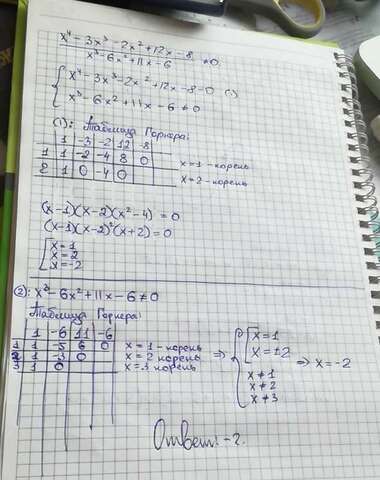 x⁴ - 3x³ - 2x² + 12x - 8
x³ - 6x² + 11x - 6 ≠ 0
{ x⁴ - 3x³ - 2x² + 12x - 8 = 0 (1)
x³ - 6x² + 11x - 6 ≠ 0
(1): Таблица Горнера:
1 -3 -2 12 -8
1 1 -2 -4 8 0 x = 1 - корень
2 1 0 -4 0 x = 2 - корень
(x-1)(x-2)(x²-4) = 0
(x-1)(x-2)²(x+2) = 0
[ x = 1
x = 2
x = -2
(2): x³ - 6x² + 11x - 6 ≠ 0
Таблица Горнера:
1 -6 11 -6
1 1 -5 6 0 x = 1 - корень
2 1 -3 0 x = 2 корень
3 1 0 x = 3 корень
⇒ { [ x = 1
x = ±2
x ≠ 1
x ≠ 2
x ≠ 3
⇒ x = -2
Ответ: -2.